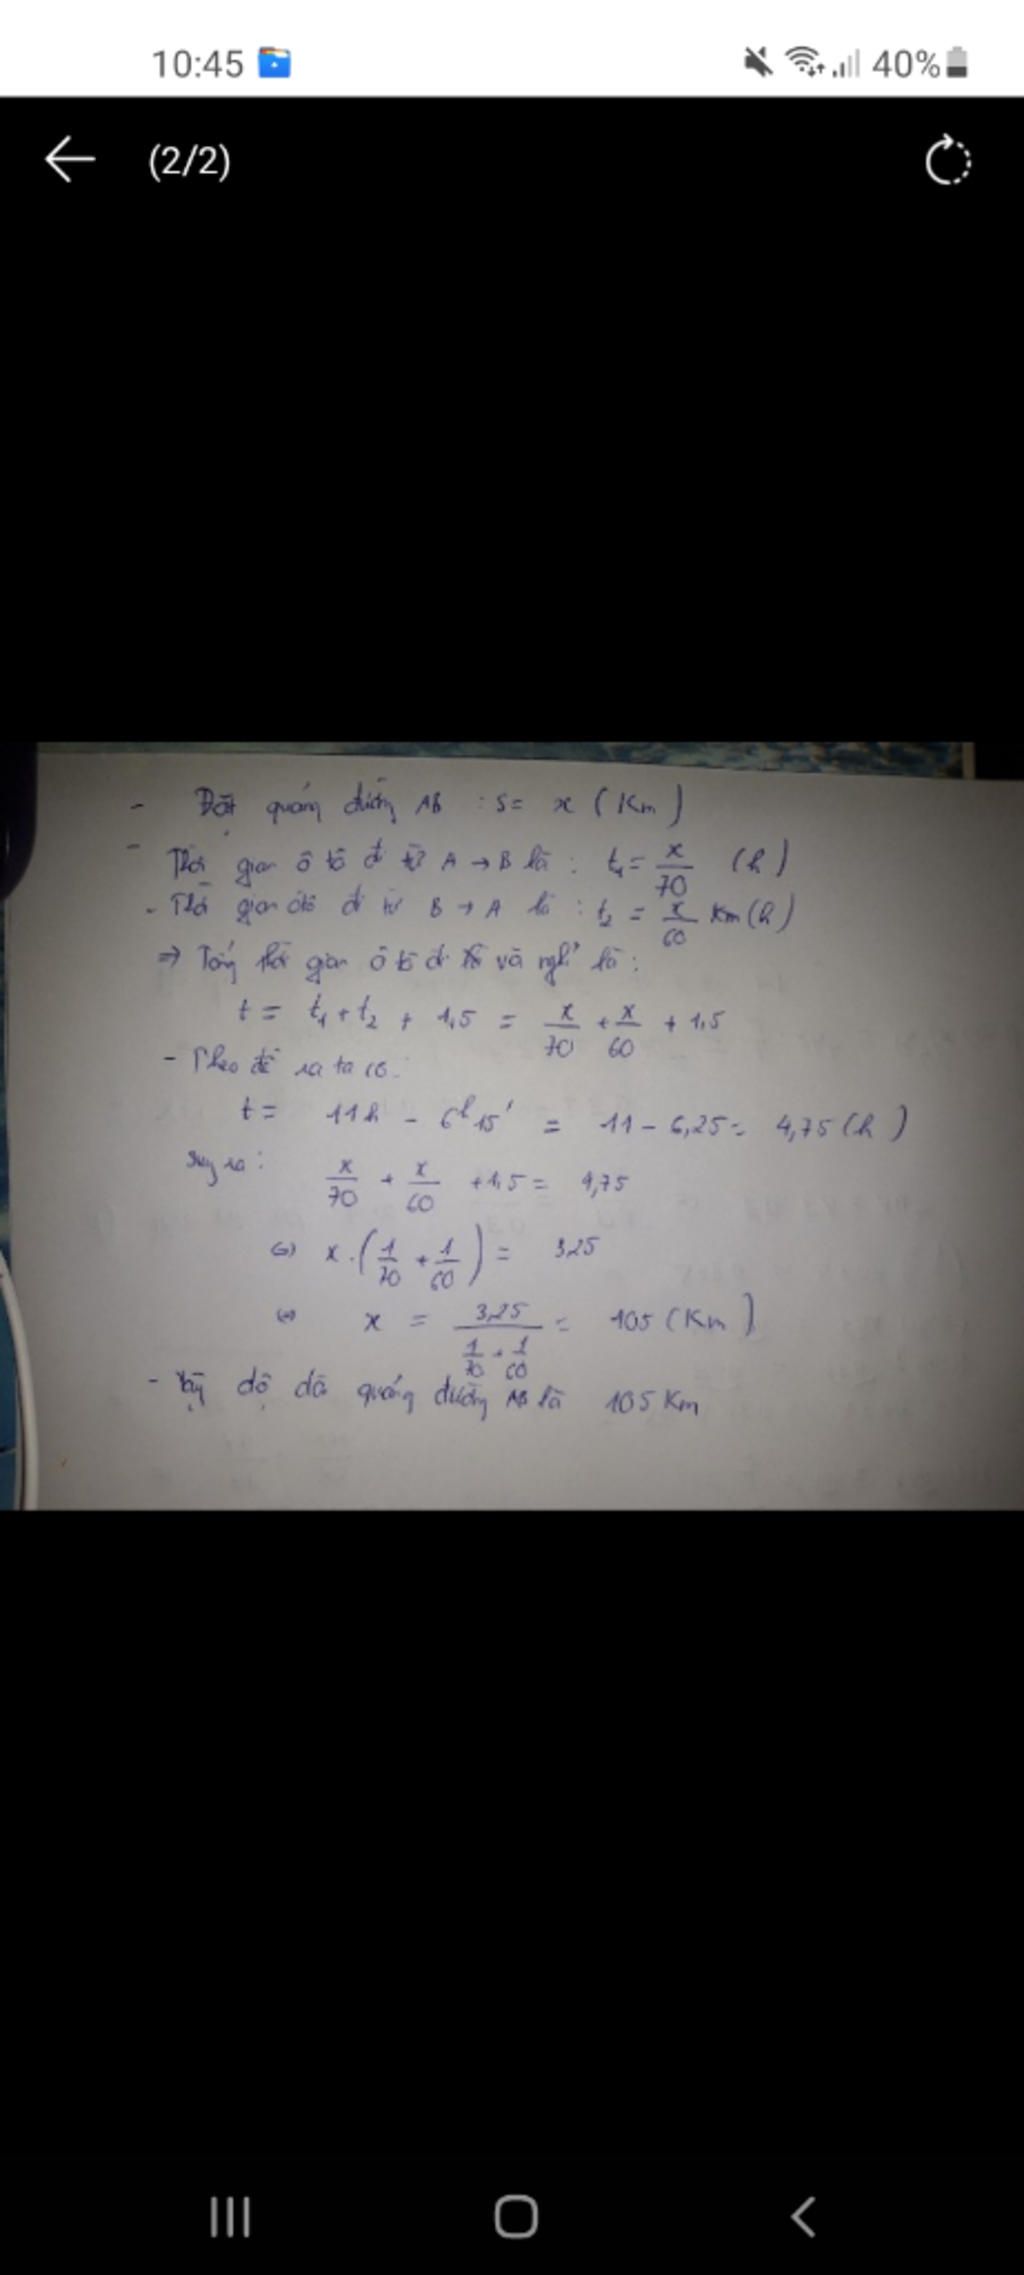 10:45 40%
(2/2)
- Đặt quãng đường AB : S = x (Km)
- Thời gian ô tô đi từ A → B là : t₁ = x/70 (h)
- Thời gian ôtô đi từ B → A là : t₂ = x/60 Km (h)
⇒ Tổng thời gian ô tô đi và nghỉ là :
t = t₁ + t₂ + 1,5 = x/70 + x/60 + 1,5
- Theo đề ra ta có :
t = 11h - 6h15' = 11 - 6,25 = 4,75 (h)
Suy ra : x/70 + x/60 + 1,5 = 4,75
⇔ x . (1/70 + 1/60) = 3,25
⇔ x = 3,25/(1/70 + 1/60) = 105 (Km)
- Vậy độ dài quãng đường AB là 105 Km